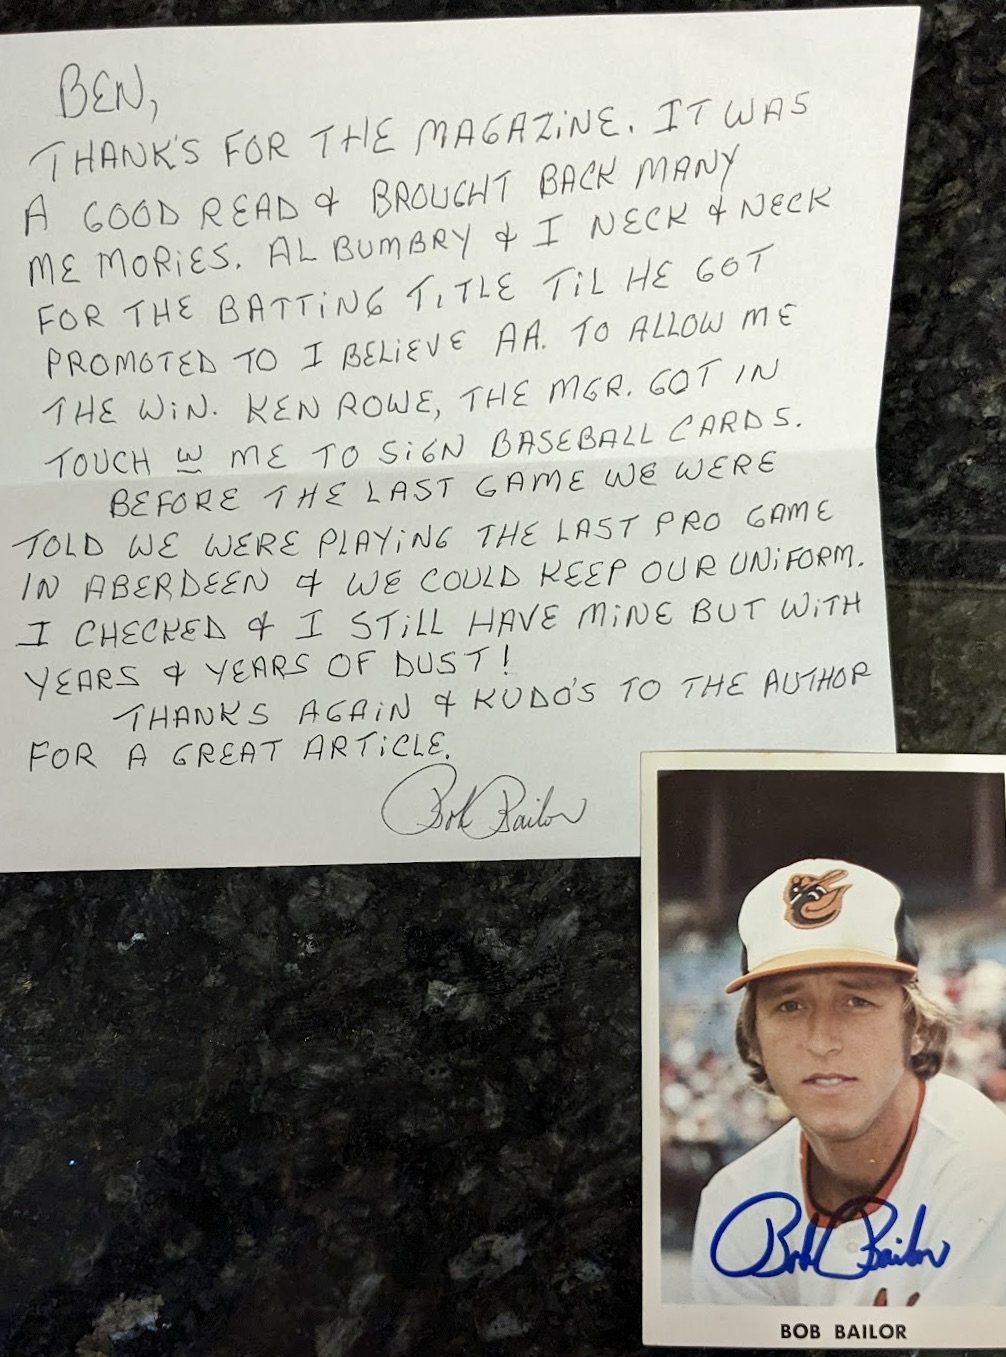 BEN,
THANK'S FOR THE MAGAZINE. IT WAS
A GOOD READ & BROUGHT BACK MANY
MEMORIES. AL BUMBRY & I NECK & NECK
FOR THE BATTING TITLE TIL HE GOT
PROMOTED TO I BELIEVE AA. TO ALLOW ME
THE WIN. KEN ROWE, THE MGR. GOT IN
TOUCH W ME TO SIGN BASEBALL CARDS.
BEFORE THE LAST GAME WE WERE
TOLD WE WERE PLAYING THE LAST PRO GAME
IN ABERDEEN & WE COULD KEEP OUR UNIFORM.
I CHECKED & I STILL HAVE MINE BUT WITH
YEARS & YEARS OF DUST!
THANKS AGAIN & KUDO'S TO THE AUTHOR
FOR A GREAT ARTICLE.
Bob Bailor
Bob Bailor
BOB BAILOR